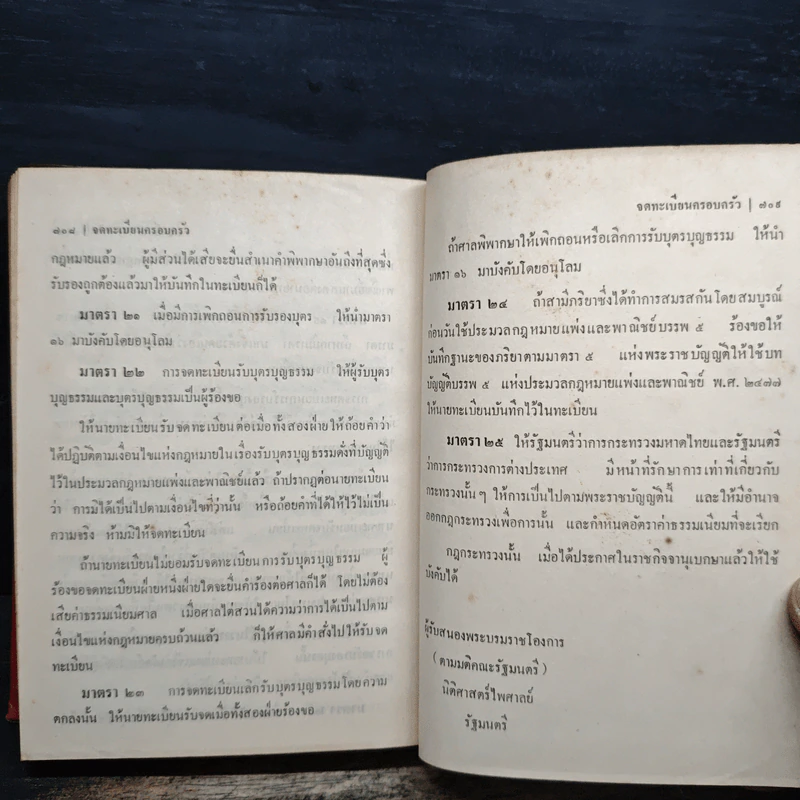 ๗๐๘ | จดทะเบียนครอบครัว
กฎหมายแล้ว ผู้มีส่วนได้เสียจะยื่นสำเนาคำพิพากษาอันถึงที่สุดซึ่ง
รับรองถูกต้องแล้วมาให้บันทึกในทะเบียนก็ได้
มาตรา ๒๑ เมื่อมีการเพิกถอนการรับรองบุตร ให้นำมาตรา
๑๖ มาบังคับโดยอนุโลม
มาตรา ๒๒ การจดทะเบียนรับบุตรบุญธรรม ให้ผู้รับบุตร
บุญธรรมและบุตรบุญธรรมเป็นผู้ร้องขอ
ให้นายทะเบียนรับจดทะเบียนต่อเมื่อทั้งสองฝ่ายให้ถ้อยคำว่า
ได้ปฏิบัติตามเงื่อนไขแห่งกฎหมายในเรื่องรับบุตรบุญธรรมดั่งที่บัญญัติ
ไว้ในประมวลกฎหมายแพ่งและพาณิชย์แล้ว ถ้าปรากฏต่อนายทะเบียน
ว่า การมิได้เป็นไปตามเงื่อนไขที่ว่านั้น หรือถ้อยคำที่ได้ให้ไว้ไม่เป็น
ความจริง ห้ามมิให้จดทะเบียน
ถ้านายทะเบียนไม่ยอมรับจดทะเบียนการรับบุตรบุญธรรม ผู้
ร้องขอจดทะเบียนฝ่ายหนึ่งฝ่ายใดจะยื่นคำร้องต่อศาลก็ได้ โดยไม่ต้อง
เสียค่าธรรมเนียมศาล เมื่อศาลไต่สวนได้ความว่าการได้เป็นไปตาม
เงื่อนไขแห่งกฎหมายครบถ้วนแล้ว ก็ให้ศาลมีคำสั่งไปให้รับจด
ทะเบียน
มาตรา ๒๓ การจดทะเบียนเลิกรับบุตรบุญธรรมโดยความ
ตกลงนั้น ให้นายทะเบียนรับจดเมื่อทั้งสองฝ่ายร้องขอ
จดทะเบียนครอบครัว | ๗๐๙
ถ้าศาลพิพากษาให้เพิกถอนหรือเลิกการรับบุตรบุญธรรม ให้นำ
มาตรา ๑๖ มาบังคับโดยอนุโลม
มาตรา ๒๔ ถ้าสามีภริยาซึ่งได้ทำการสมรสกันโดยสมบูรณ์
ก่อนวันใช้ประมวลกฎหมายแพ่งและพาณิชย์บรรพ ๕ ร้องขอให้
บันทึกฐานะของภริยาตามมาตรา ๕ แห่งพระราชบัญญัติให้ใช้บท
บัญญัติบรรพ ๕ แห่งประมวลกฎหมายแพ่งและพาณิชย์ พ.ศ. ๒๔๗๗
ให้นายทะเบียนบันทึกไว้ในทะเบียน
มาตรา ๒๕ ให้รัฐมนตรีว่าการกระทรวงมหาดไทยและรัฐมนตรี
ว่าการกระทรวงการต่างประเทศ มีหน้าที่รักษาการเท่าที่เกี่ยวกับ
กระทรวงนั้น ๆ ให้การเป็นไปตามพระราชบัญญัตินี้ และให้มีอำนาจ
ออกกฎกระทรวงเพื่อการนั้น และกำหนดอัตราค่าธรรมเนียมที่จะเรียก
กฎกระทรวงนั้น เมื่อได้ประกาศในราชกิจจานุเบกษาแล้วให้ใช้
บังคับได้
ผู้รับสนองพระบรมราชโองการ
(ตามมติคณะรัฐมนตรี)
นิติศาสตร์ไพศาลย์
รัฐมนตรี